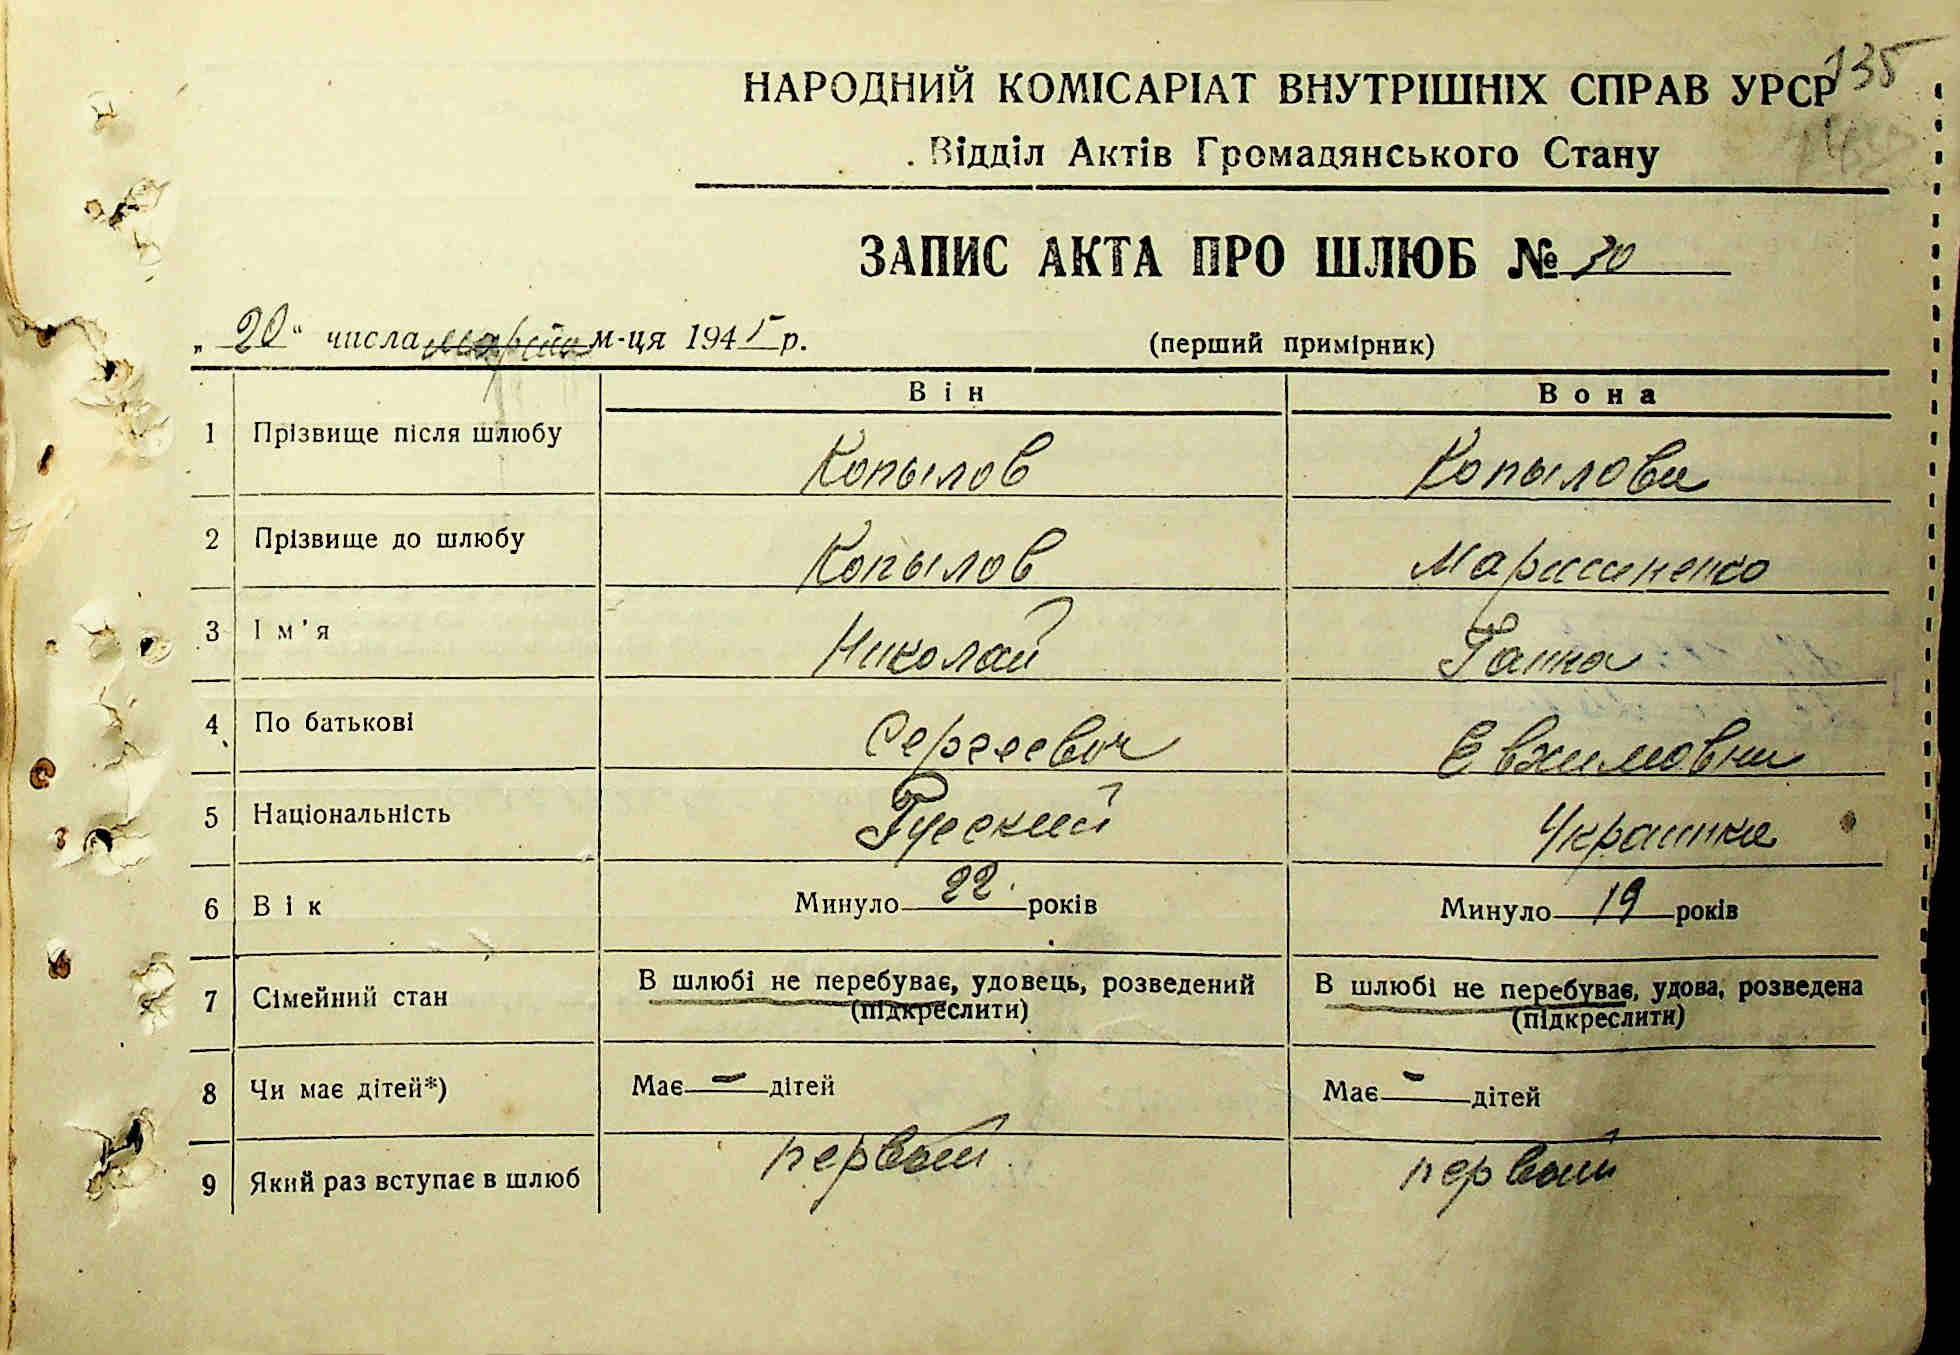 135
НАРОДНИЙ КОМІСАРІАТ ВНУТРІШНІХ СПРАВ УРСР
Відділ Актів Громадянського Стану
ЗАПИС АКТА ПРО ШЛЮБ № 30
„20“ числа марта м-ця 1945 р. (перший примірник)
Він Вона
1 Прізвище після шлюбу Копылов Копылова
2 Прізвище до шлюбу Копылов
3 Ім'я Николай Ганна
4 По батькові Сергеевич Евхимовна
5 Національність Русский Украинка
6 Вік Минуло 22 років Минуло 19 років
7 Сімейний стан В шлюбі не перебуває, удовець, розведений (підкреслити) В шлюбі не перебуває, удова, розведена (підкреслити)
8 Чи має дітей*) Має – дітей Має – дітей
9 Який раз вступає в шлюб первый первый